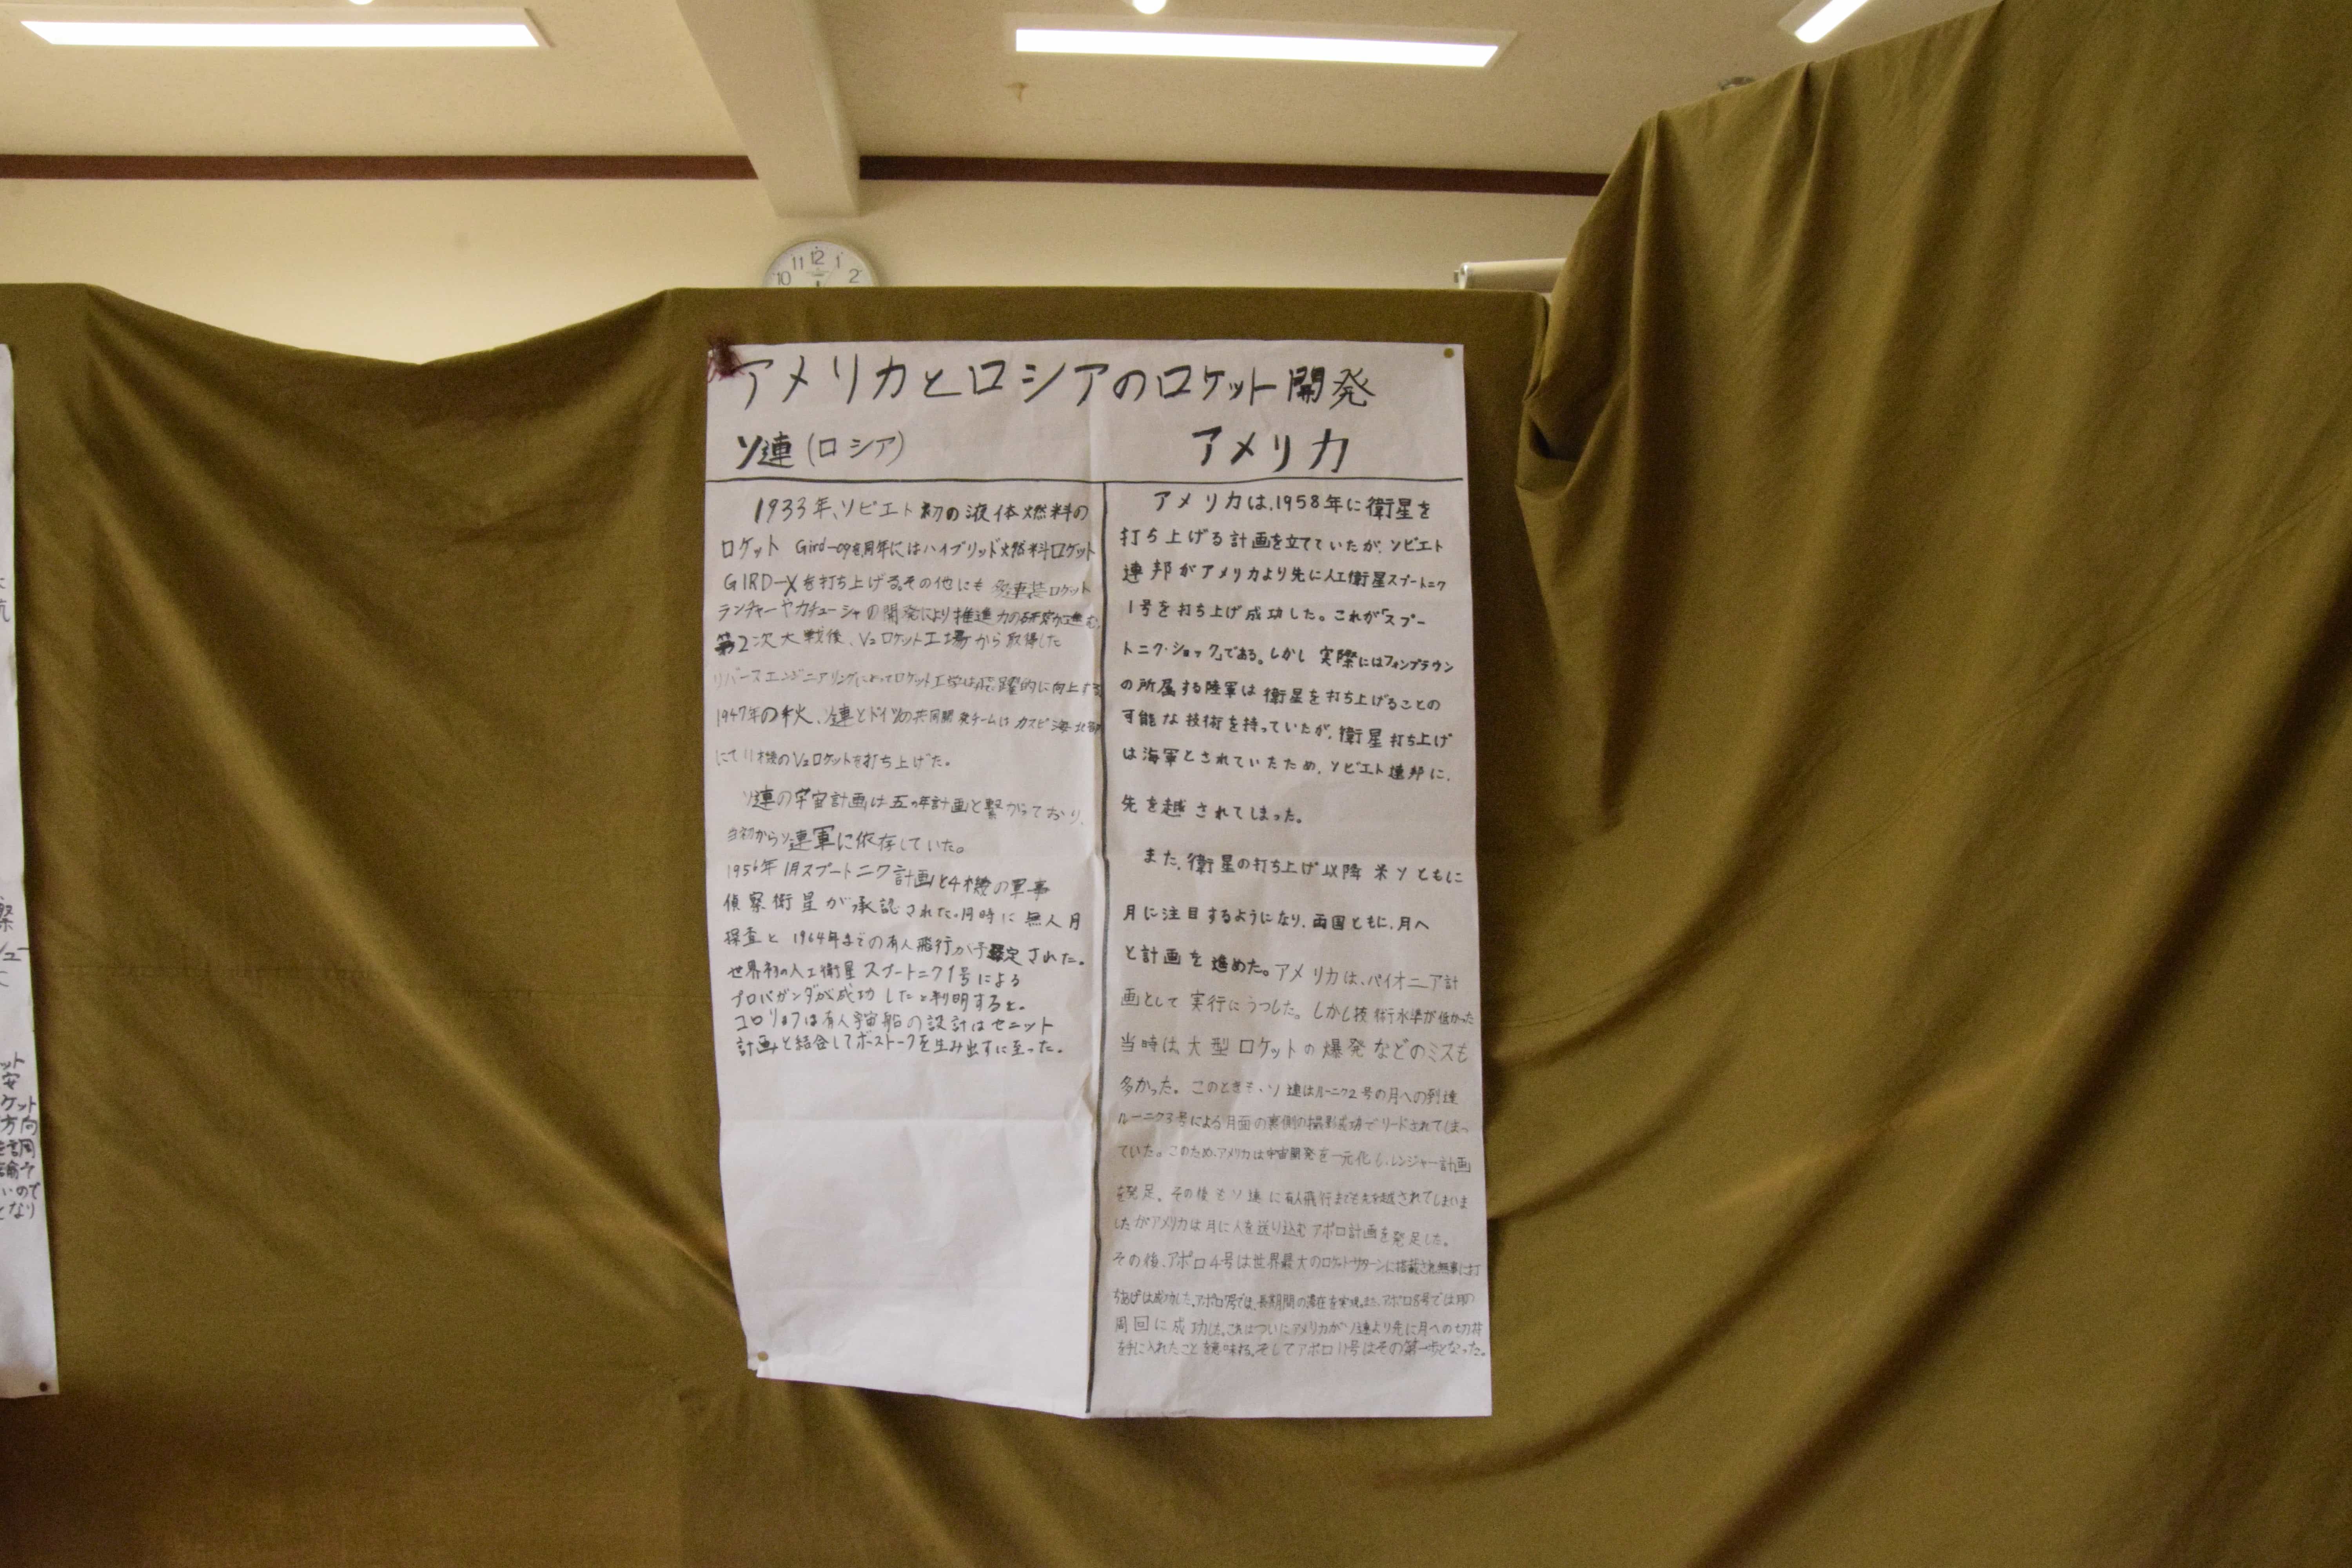 11 12 1
10 2
アメリカとロシアのロケット開発
ソ連(ロシア)
1933年、ソビエト初の液体燃料の
ロケット Gird-09を同年にはハイブリッド燃料ロケット
GIRD-Xを打ち上げる。その他にも 多連装ロケット
ランチャーやカチューシャの開発により推進力の研究が進む。
第2次大戦後、V2ロケット工場から取得した
リバースエンジニアリングによってロケット工学は飛躍的に向上する
1947年の秋、ソ連とドイツの共同開発チームは カスピ海北部
にて11機のV2ロケットを打ち上げた。
ソ連の宇宙計画は五ヵ年計画と繋がっており、
当初からソ連軍に依存していた。
1956年1月スプートニク計画と4機の軍事
偵察衛星が承認された。同時に無人月
探査と 1964年までの有人飛行が予定された。
世界初の人工衛星スプートニク1号による
プロパガンダが成功したと判明すると、
コロリョフは有人宇宙船の設計はゼニット
計画と結合してボストークを生み出すに至った。
アメリカ
アメリカは、1958年に衛星を
打ち上げる計画を立てていたが、ソビエト
連邦がアメリカより先に人工衛星スプートニク
1号を打ち上げ成功した。これが「スプー
トニク・ショック」である。しかし 実際にはフォンブラウン
の所属する陸軍は衛星を打ち上げることの
可能な技術を持っていたが、衛星打ち上げ
は海軍とされていたため、ソビエト連邦に、
先を越されてしまった。
また、衛星の打ち上げ以降 米ソともに
月に注目するようになり、両国ともに、月へ
と計画を進めた。アメリカは、パイオニア計
画として実行にうつした。しかし技術水準が低かった
当時は大型ロケットの爆発などのミスも
多かった。このときも、ソ連はルーニク2号の月への到達
ルーニク3号による月面の裏側の撮影成功でリードされてしまっ
ていた。このため、アメリカは宇宙開発を一元化し、レンジャー計画
を発足。その後もソ連に有人飛行までも先を越されてしまいま
したがアメリカは月に人を送り込むアポロ計画を発足した。
その後、アポロ4号は世界最大のロケット・サターンに搭載され無事に打
ちあげは成功した。アポロ7号では、長期間の滞在を実現。また、アポロ8号では月の
周回に成功した。これはついにアメリカがソ連より先に月への切符
を手に入れたことを意味する。そしてアポロ11号はその第一歩となった。